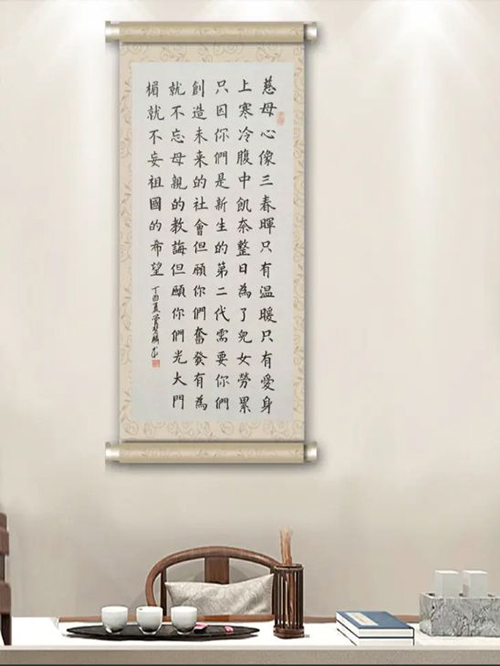 慈母心像三春暉只有温暖只有愛身
上寒冷腹中飢奈整日為了兒女勞累
只因你們是新生的第二代需要你們
創造未來的社會但願你們奮發有為
就不忘母親的教誨但願你們光大門
楣就不妄祖國的希望 丁酉夏